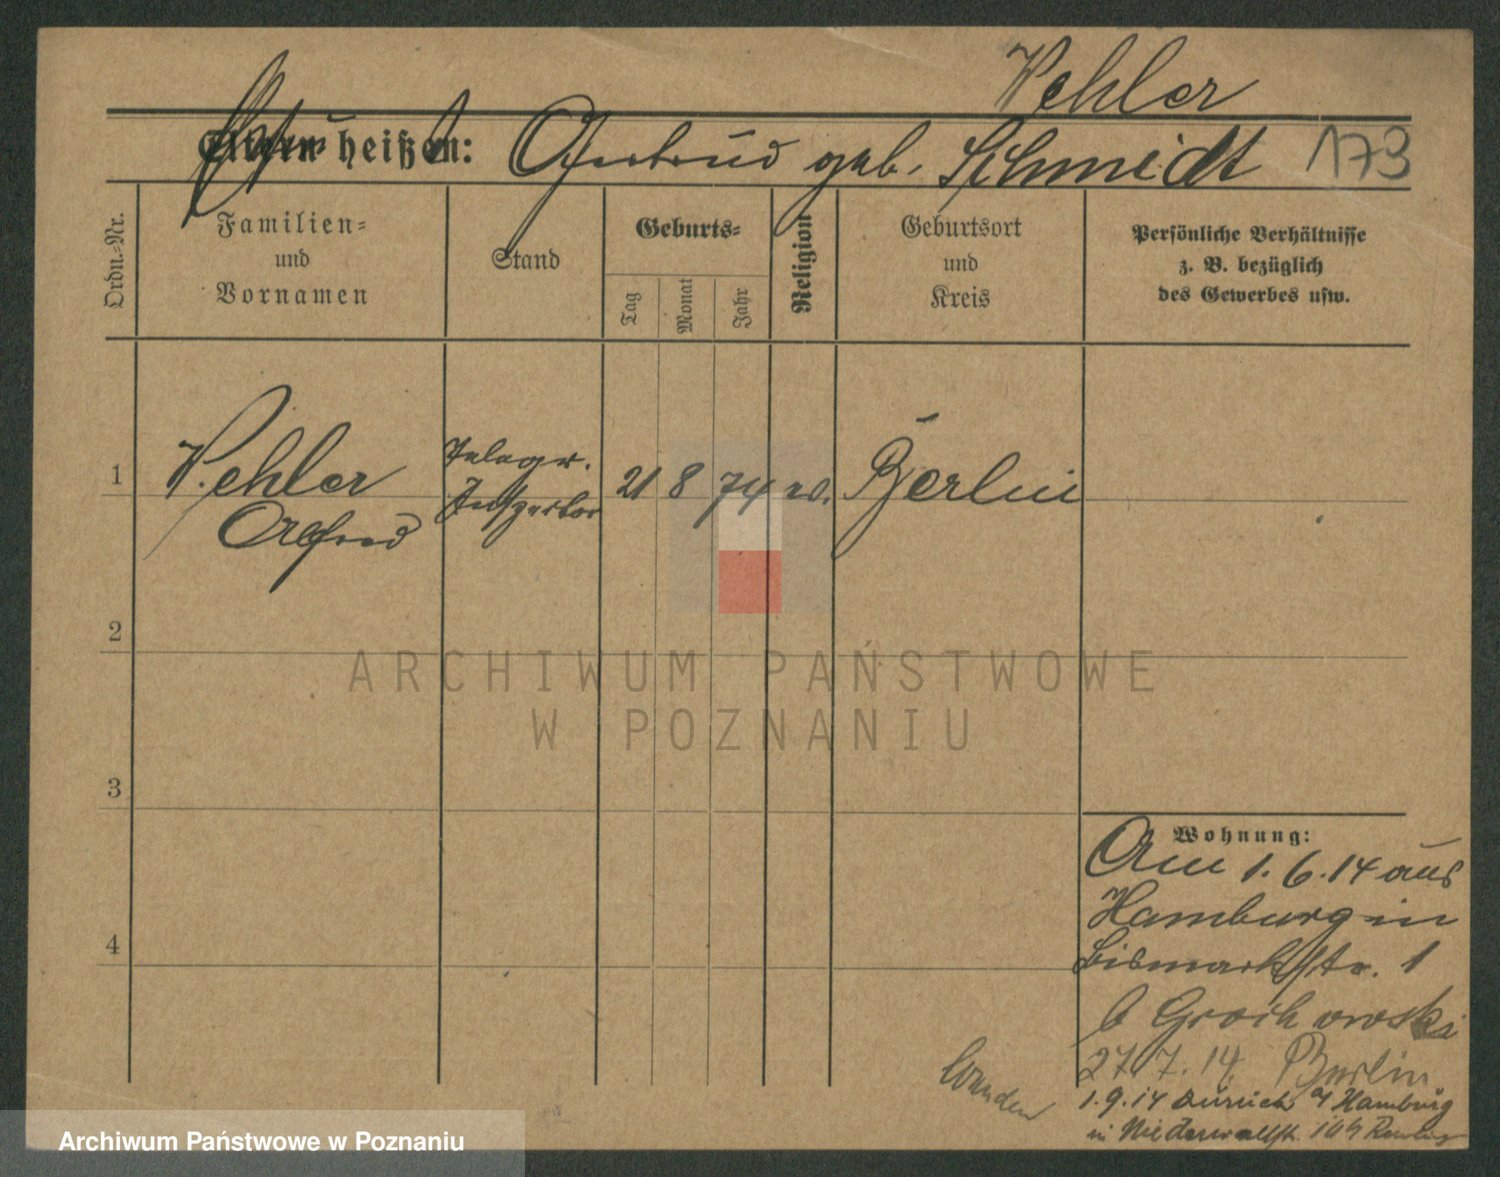 Wehler
Eltern heißen: Gertrud geb. Schmidt 173
Ordn.-Nr.
Familien- und Vornamen
Stand
Geburts-
Tag Monat Jahr
Religion
Geburtsort und Kreis
Persönliche Verhältnisse
z. B. bezüglich
des Gewerbes usw.
1 Wehler Telegr. 21 8 74 ev. Berlin
Alfred
2
3
4
Wohnung:
Am 1.6.14 aus
Hamburg in
Bismarckstr. 1
b Grochowski
27.7.14 Berlin
1.9.14 zurück a/ Hamburg
in Niederwallstr.
Wenden
ARCHIWUM PAŃSTWOWE
W POZNANIU
Archiwum Państwowe w Poznaniu